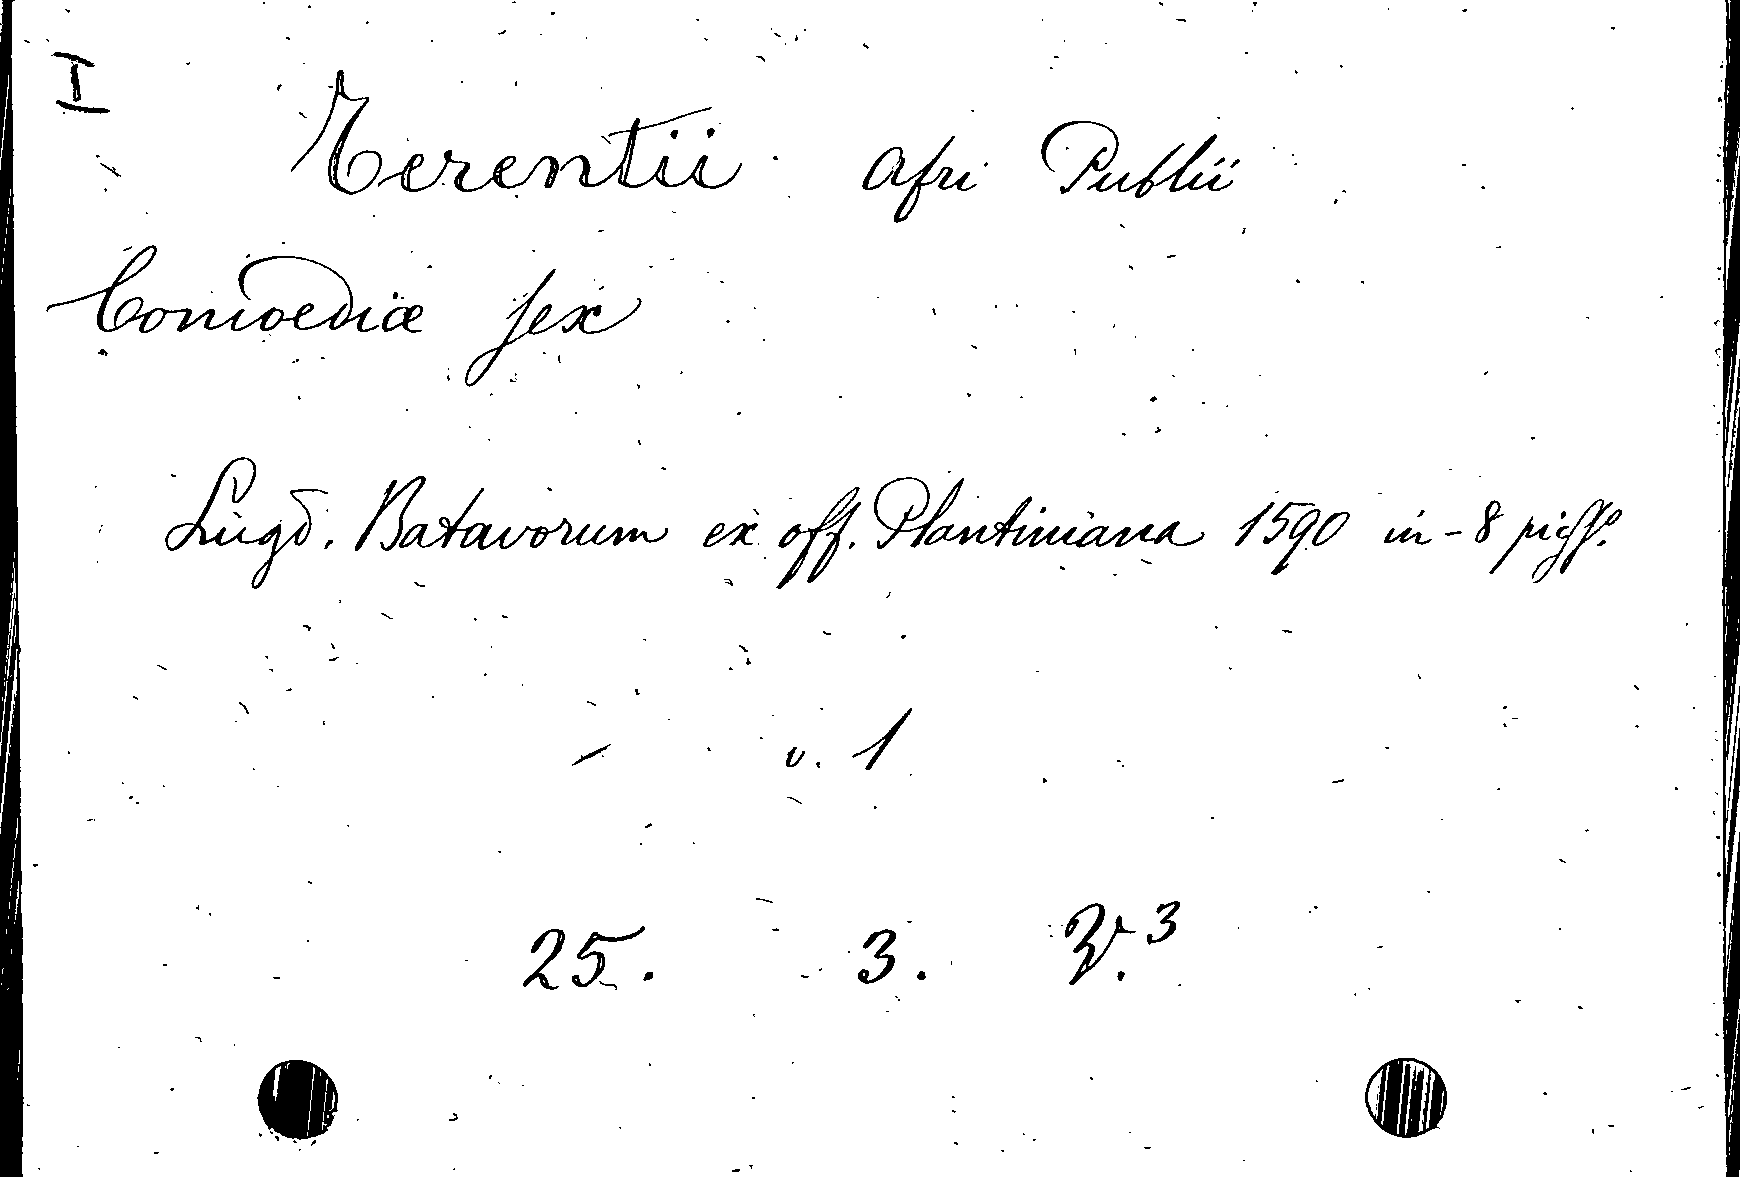 I
Terentii Afri Publii
Comoediæ sex
Lugd. Batavorum ex off. Plantiniana 1590 in-8 picc.º
v. 1
25. 3.